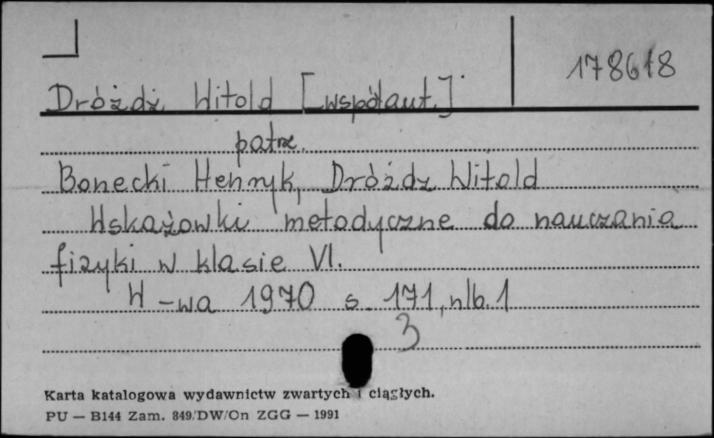 178618
Dróżdż Witold [współaut.]
patrz
Bonecki Henryk, Dróżdż Witold
Wskazówki metodyczne do nauczania
fizyki w klasie VI.
W-wa 1970 s. 171, nlb. 1
3
Karta katalogowa wydawnictw zwartych i ciągłych.
PU — B144 Zam. 849/DW/On ZGG — 1991